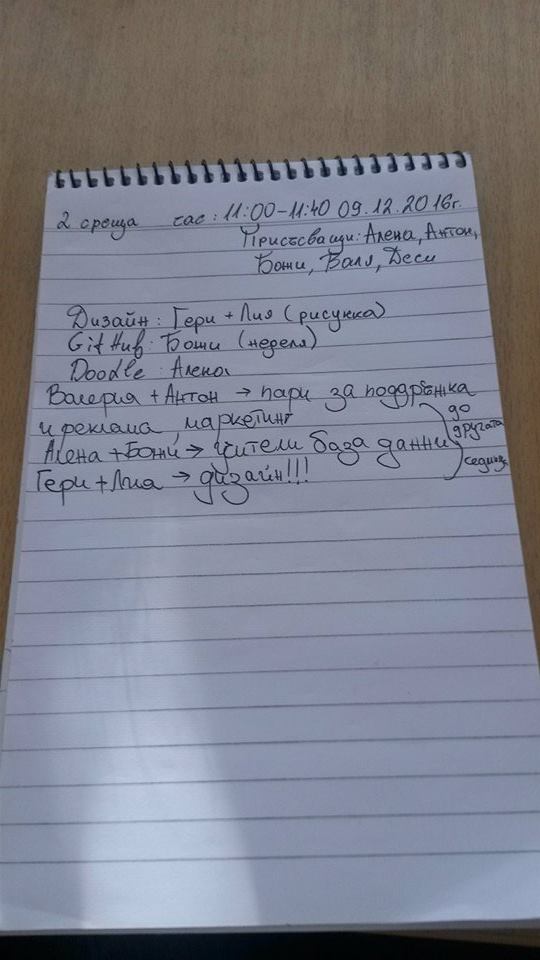 2 среща час: 11:00-11:40 09.12.2016г.
Присъсващи: Алена, Антон,
Божи, Валя, Деси
Дизайн: Гери + Лия (рисунка)
GitHub: Божи (неделя)
Doodle: Алена
Валерия + Антон → пари за поддръжка
и реклама, маркетинг
до
другата
Алена + Божи → учители база данни
Гери + Лиа → дизайн!!!